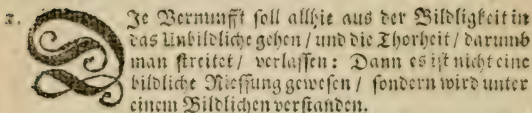 1. DJe Vernunfft soll allhie aus der Bildligkeit in
das Unbildliche gehen / und die Thorheit / darumb
man streitet / verlassen: Dann es ist nicht eine
bildliche Niessung gewesen / sondern wird unter
einem Bildlichen verstanden.